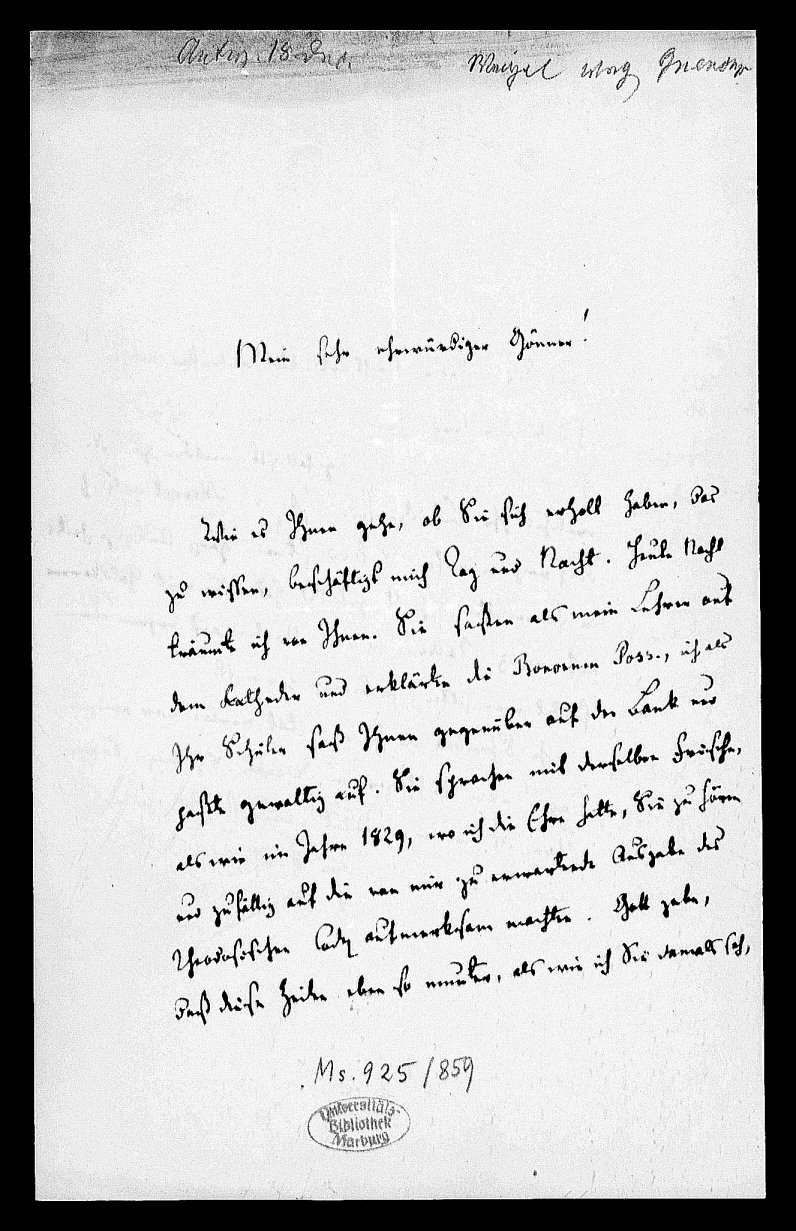 Mein sehr ehrwürdiger Gönner!
Wie es Ihnen gehe, ob Sie sich erholt haben, das
zu wissen, beschäftigt mich Tag und Nacht. Heute Nacht
träumte ich von Ihnen. Sie saßen als mein Lehrer auf
dem Katheder und erklärten die Bonorum Poss., ich als
Ihr Schüler saß Ihnen gegenüber auf der Bank und
paßte gewaltig auf. Sie sprachen mit derselben Frische,
als wie im Jahre 1829, wo ich die Ehre hatte, Sie zu hören
und zufällig auf die von mir zu erwartende Ausgabe des
Theodosischen Codex aufmerksam machten. Gott gebe,
daß diese Zeilen eben so munter, als wie ich Sie damals sah,
Ms. 925/859
Universitäts-
Bibliothek
Marburg